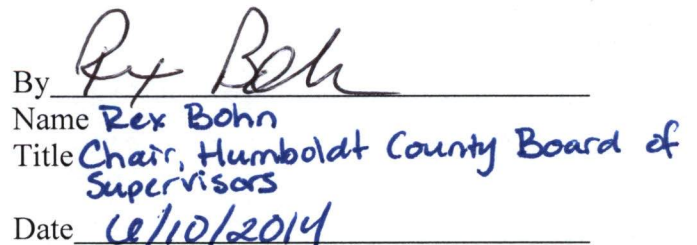 By Rex Bohn
Name Rex Bohn
Title Chair, Humboldt County Board of
Supervisors
Date 6/10/2014